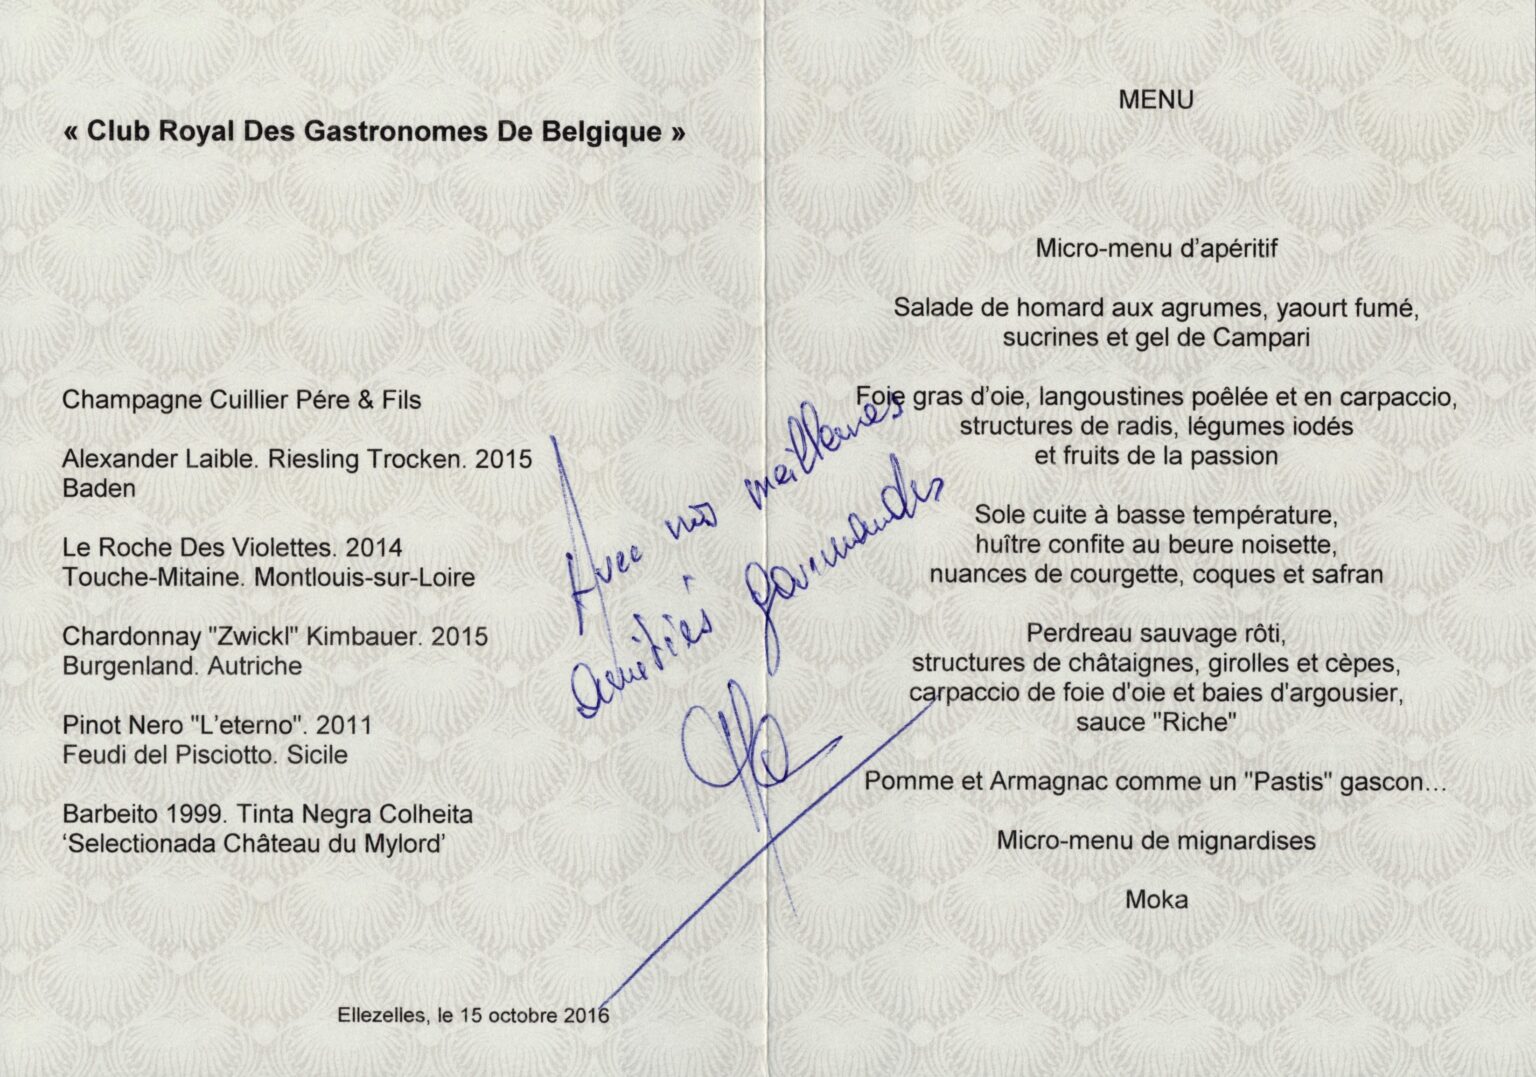 « Club Royal Des Gastronomes De Belgique »
Champagne Cuillier Pére & Fils
Alexander Laible. Riesling Trocken. 2015
Baden
Le Roche Des Violettes. 2014
Touche-Mitaine. Montlouis-sur-Loire
Chardonnay "Zwickl" Kimbauer. 2015
Burgenland. Autriche
Pinot Nero "L'eterno". 2011
Feudi del Pisciotto. Sicile
Barbeito 1999. Tinta Negra Colheita
‘Selectionada Château du Mylord’
Ellezelles, le 15 octobre 2016
Avec nos meilleures
amitiés gourmandes
MENU
Micro-menu d’apéritif
Salade de homard aux agrumes, yaourt fumé,
sucrines et gel de Campari
Foie gras d’oie, langoustines poêlée et en carpaccio,
structures de radis, légumes iodés
et fruits de la passion
Sole cuite à basse température,
huître confite au beure noisette,
nuances de courgette, coques et safran
Perdreau sauvage rôti,
structures de châtaignes, girolles et cèpes,
carpaccio de foie d'oie et baies d'argousier,
sauce "Riche"
Pomme et Armagnac comme un "Pastis" gascon…
Micro-menu de mignardises
Moka